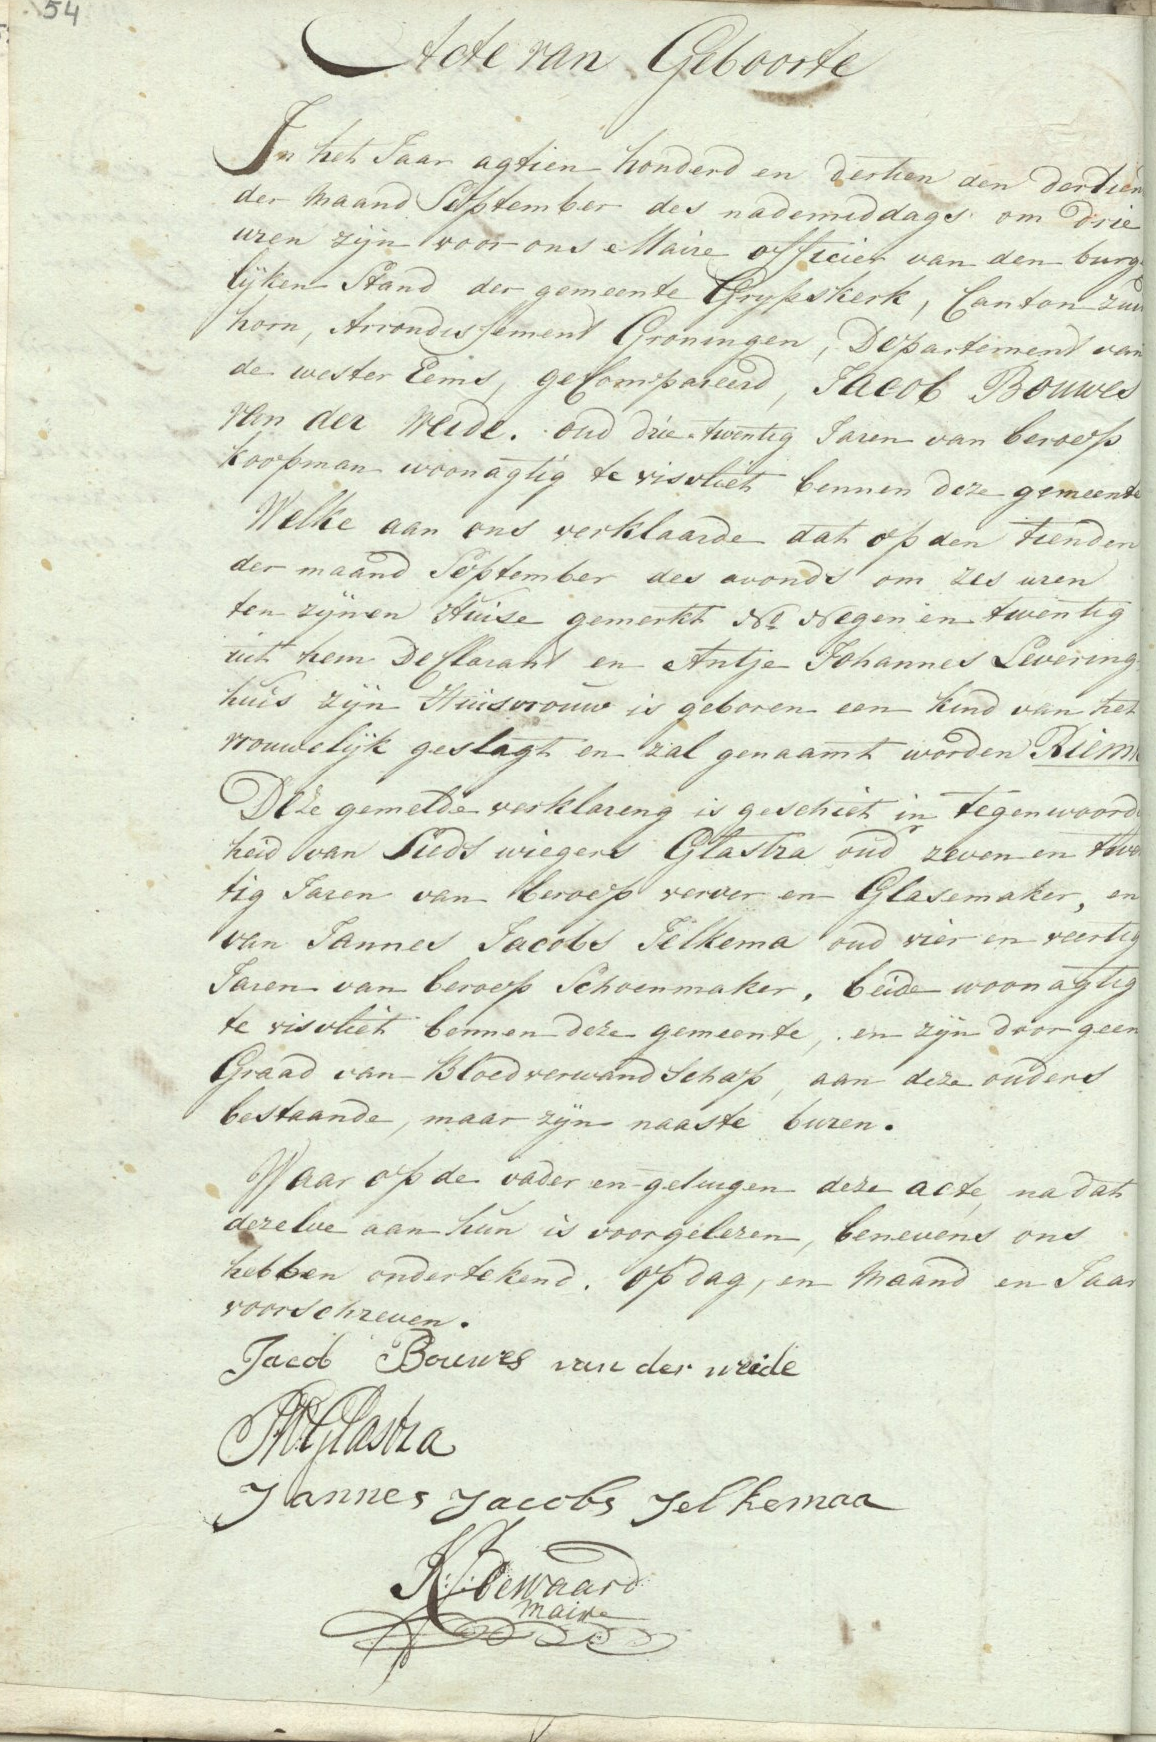 54
Acte van Geboorte
In het Jaar agtien honderd en dertien den dertien
der Maand September des nademiddags om drie
uren zijn voor ons Maire officier van den burge
lijken Stand der gemeente Grijpskerk, Canton Zuid
horn, Arrondissement Groningen, Departement van
de wester Eems, geCompareerd, Jacob Bouwes
van der Weide. oud drie-twentig Jaren van beroep
koopman woonagtig te visvliet bennen deze gemeente
Welke aan ons verklaarde dat op den tienden
der maand September des avonds om zes uren
ten zijnen Huise gemerkt No Negen en twentig
uit hem Declarant en Antje Johannes Levering
huis zijn Huisvrouw is geboren een kind van het
vrouwelijk geslagt en zal genaamt worden Riem
Deze gemelde verklareng is geschiet in tegenwoord
heid van Sieds wiegers Glastra oud zeven en twen
tig Jaren van beroep verver en Glasemaker, en
van Jannes Jacobs Jelkema oud vier en veertig
Jaren van beroep Schoenmaker. beide woonagtig
te visvliet bennen deze gemeente, en zijn door geen
Graad van Bloedverwandschap, aan deze ouders
bestaande, maar zijn naaste buren.
Waar op de vader en getuigen deze acte, na dat
dezelve aan hun is voorgelezen, benevens ons
hebben ondertekend. op dag, en Maand en Jaar
voorschreven.
Jacob Bouwes van der weide
SWGlastra
Jannes Jacobs Jelkemaa
K:J: Dewaard
Maire